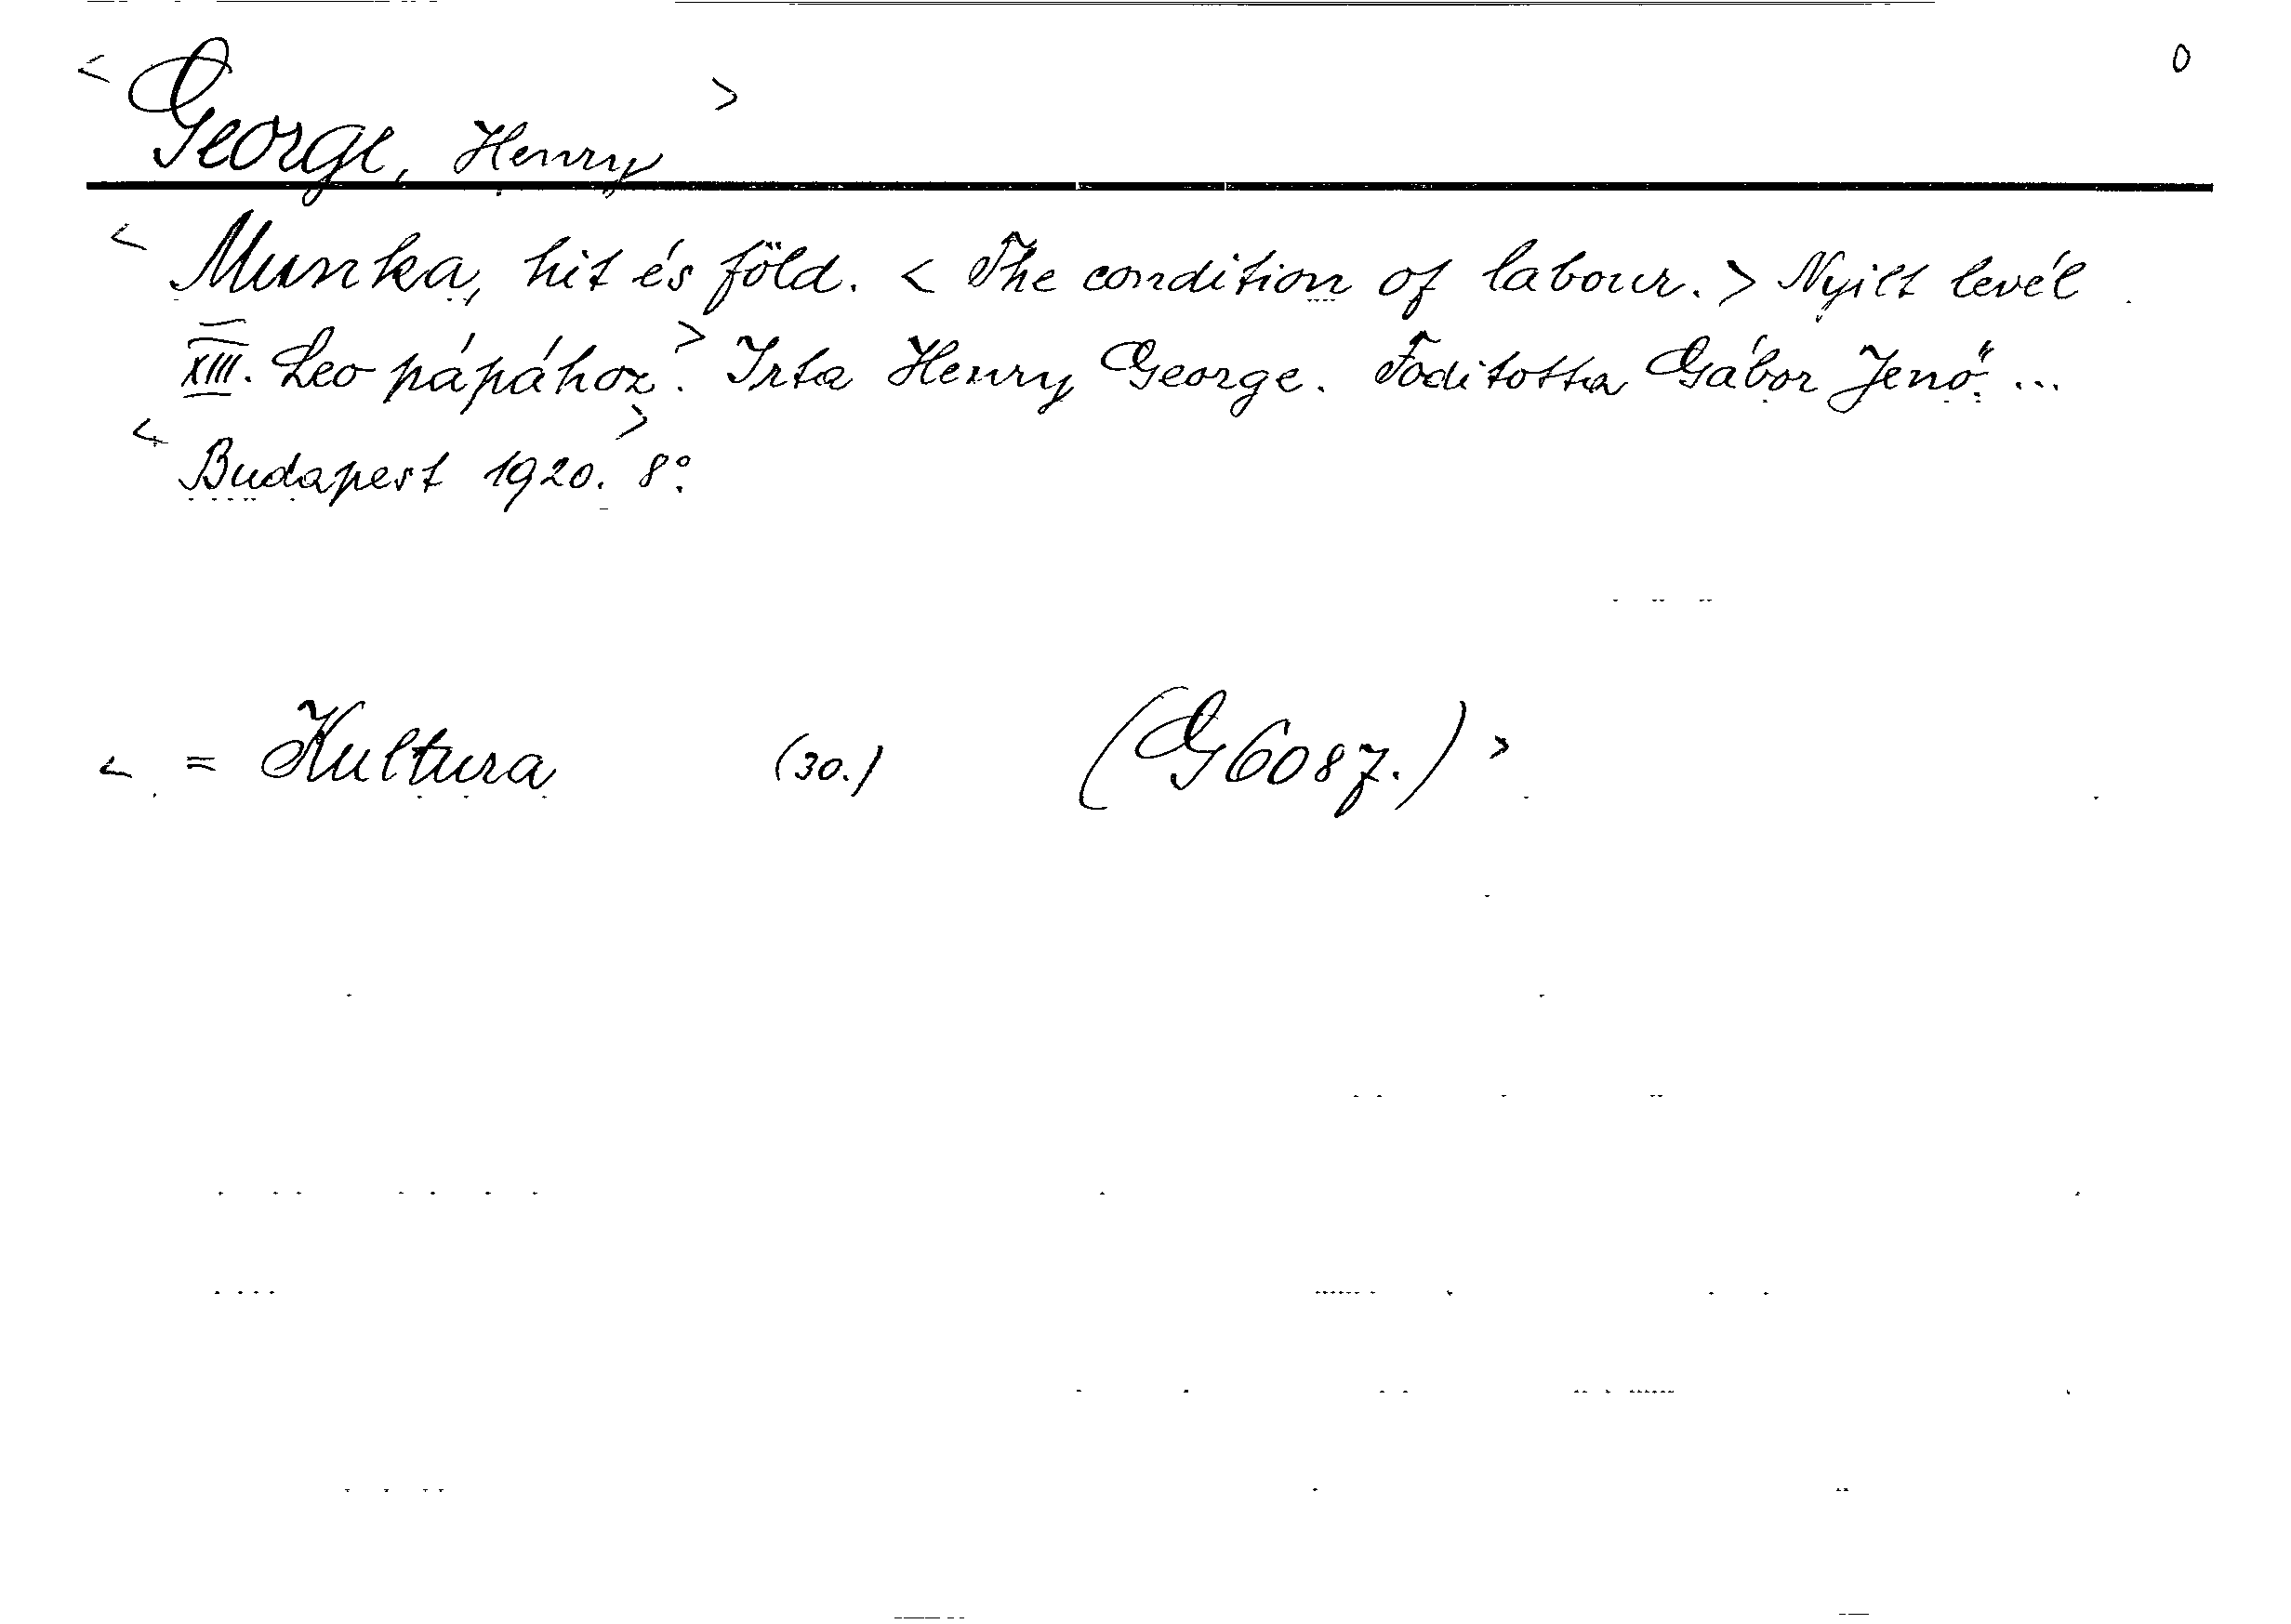 0
< George, Henry >
< Munka, hit és föld. < The condition of labour. > Nyilt levél
XIII. Leo pápához. > Irta Henry George. Foditotta Gábor Jenő. ...
< Budapest 1920. > 8°.
< = Kultura (30.) (G 6087.) >